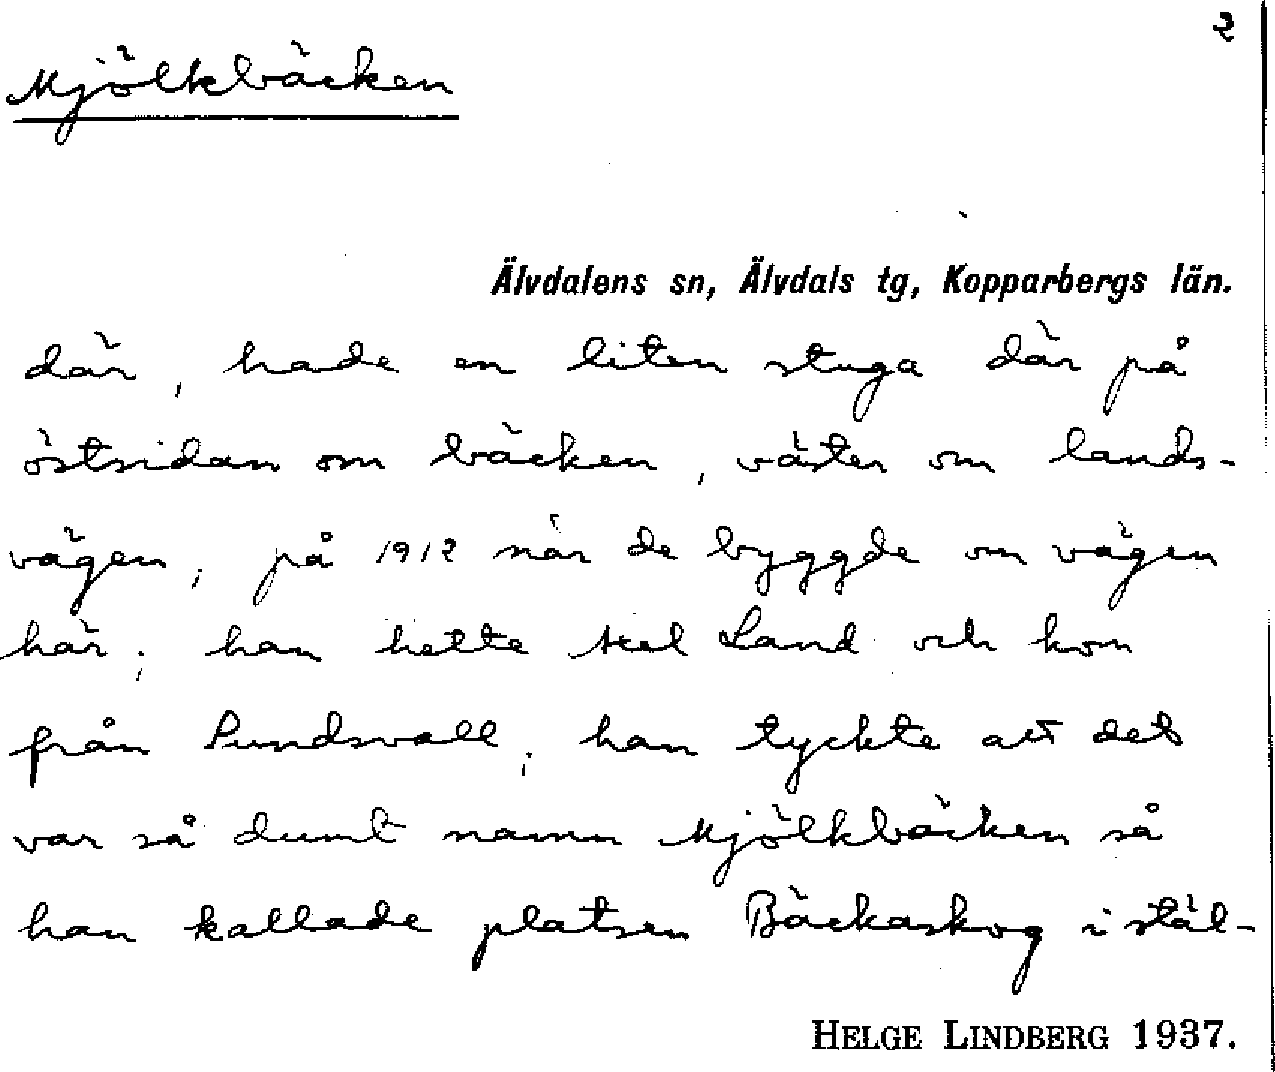 2
Mjölkbäcken
Älvdalens sn, Älvdals tg, Kopparbergs län.
där, hade en liten stuga där på
östsidan om bäcken, väster om lands-
vägen, på 1912 när de byggde om vägen
här; han hette Axel Land och kom
från Sundsvall; han tyckte att det
var så dumt namn Mjölkbäcken så
han kallade platsen Bäckaskog i stäl-
HELGE LINDBERG 1937.